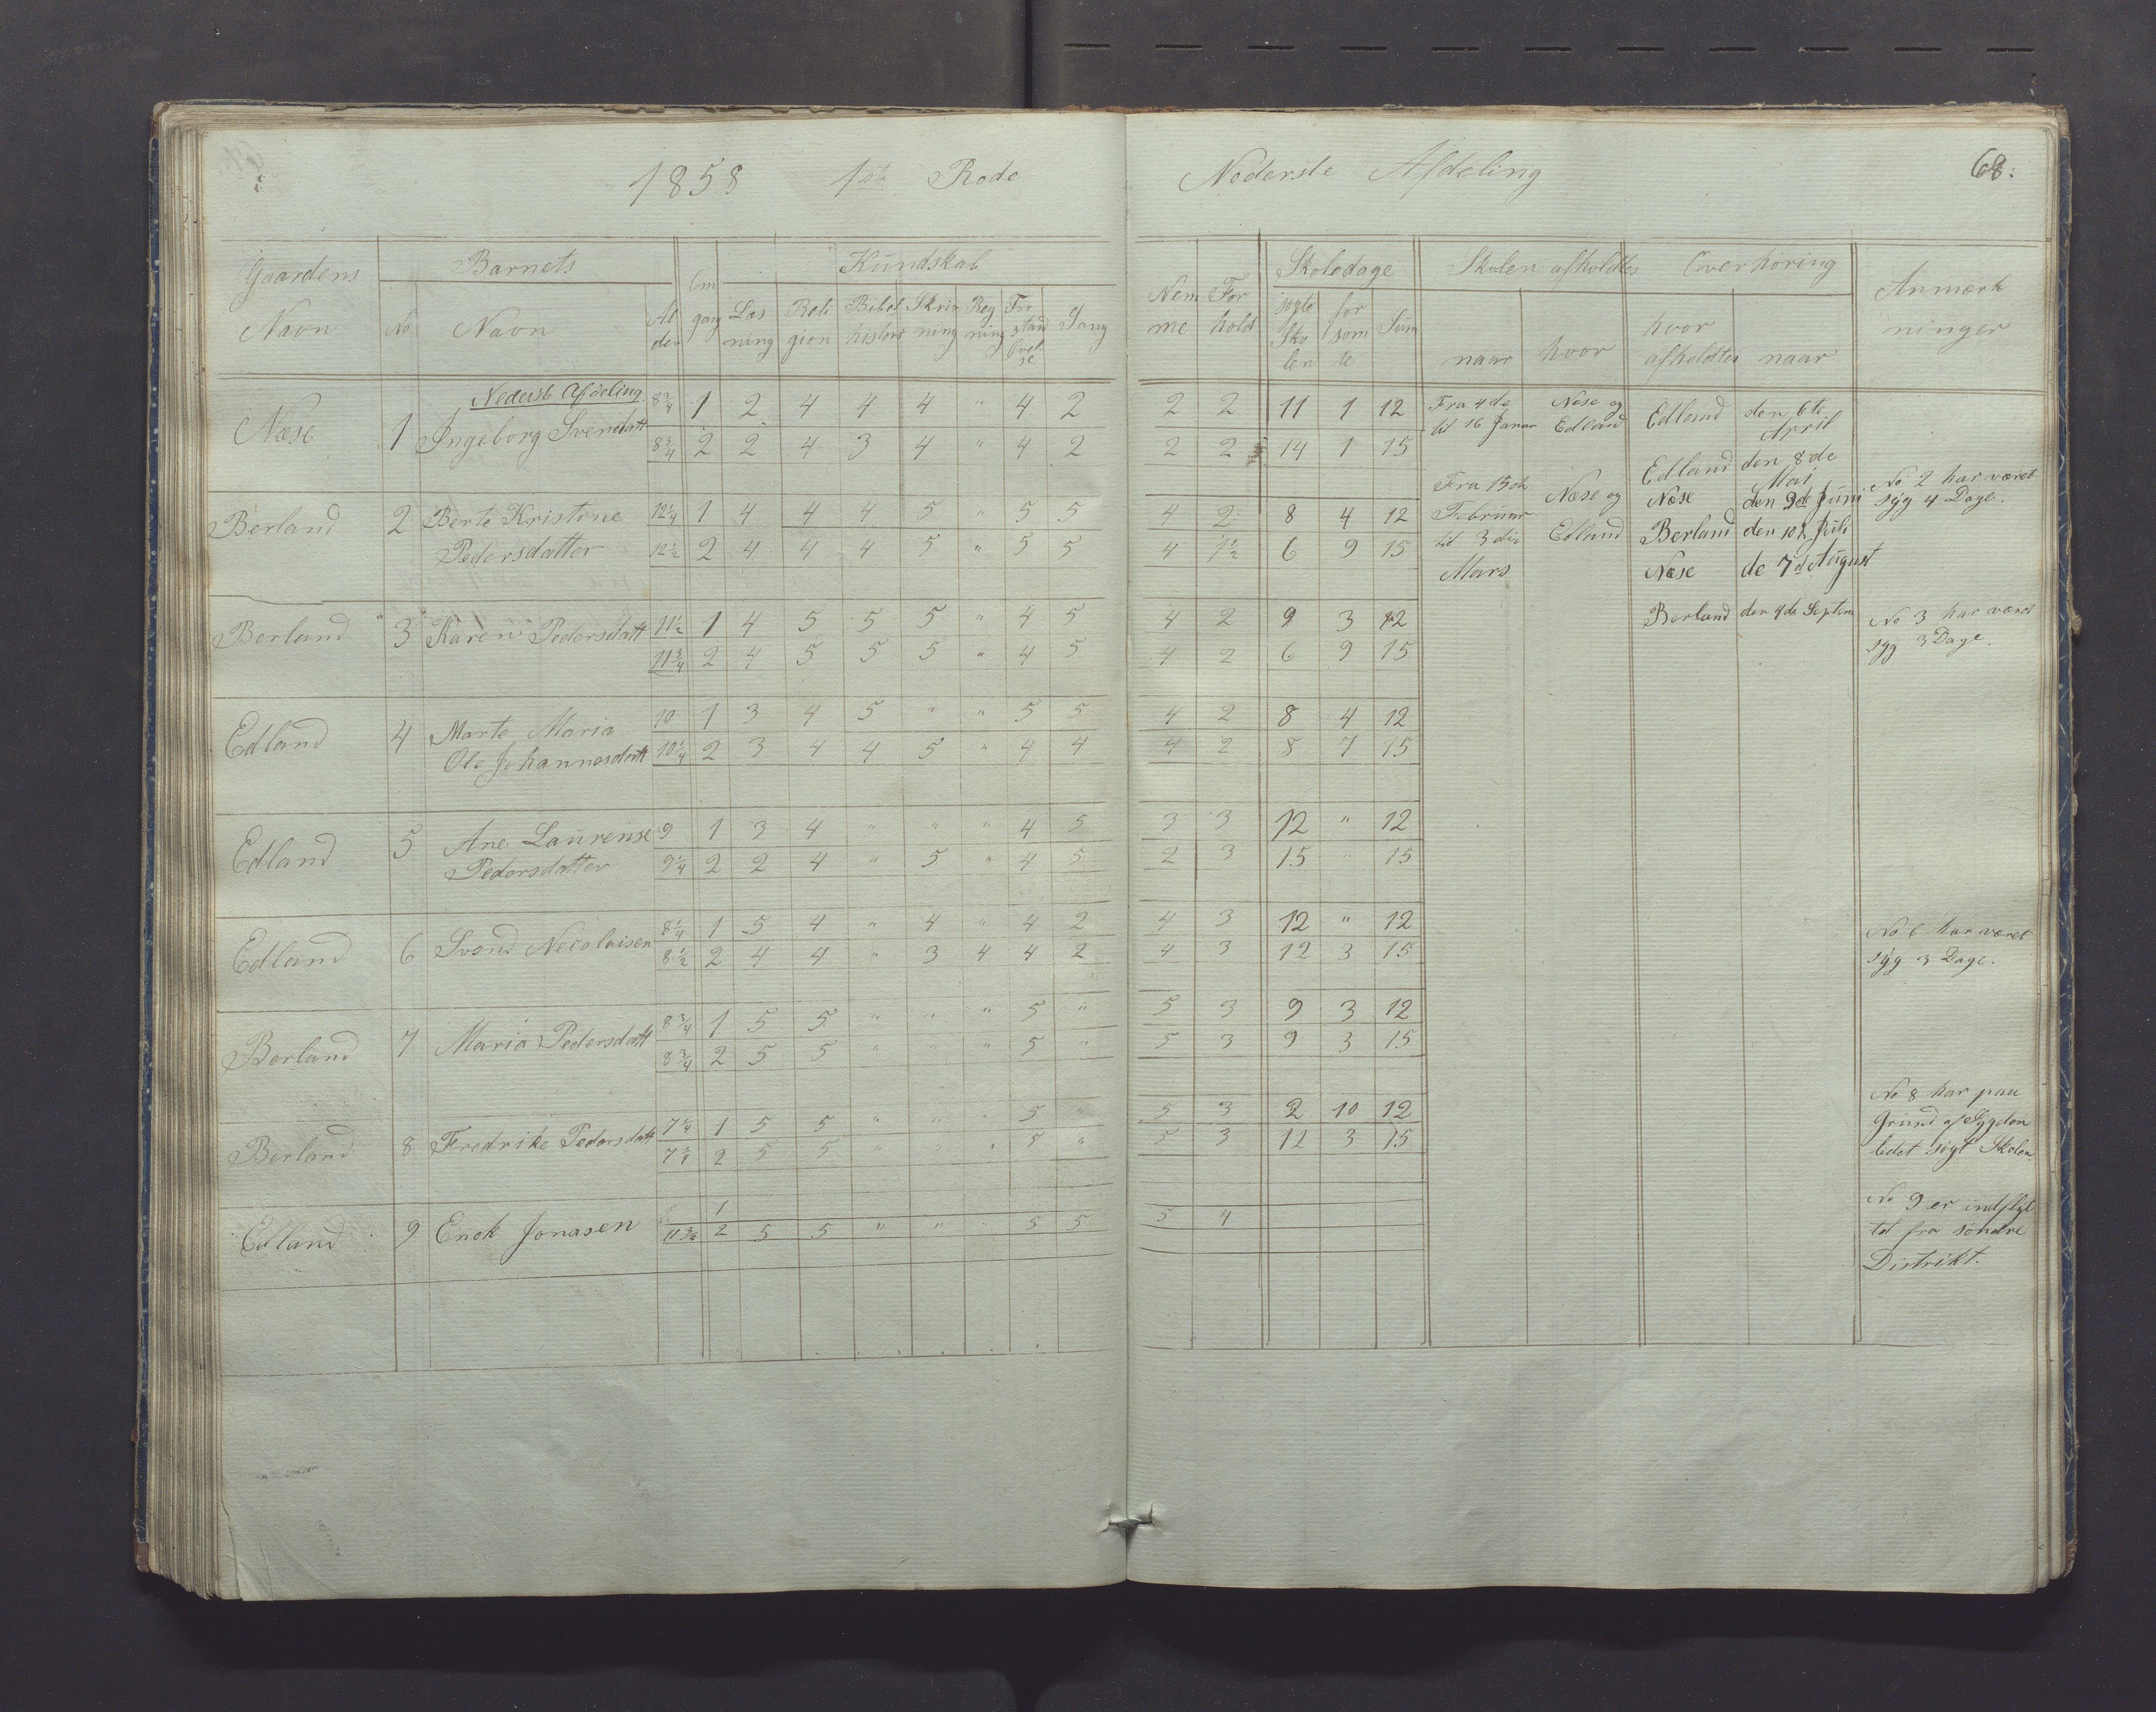 1858 1ste Rode Nederste Afdeling 68:
Gaardens Navn | Barnets No | Navn | Alder | Omgang | Kundskab Læsning | Religion | Bibelhistorie | Skrivning | Regning | Forstandsøvelse | Sang | Nemme | Forhold | Skoledage søgte Skolen | forsømte | Sum | Skolen afholdtes naar | hvor | Overhøring hvor afholdtes | naar | Anmærkninger
Nederste Afdeling
Næse 1 Ingeborg Svendsdatt 8 3/4 1 2 4 4 4 " 4 2 2 2 11 1 12
8 3/4 2 2 4 3 4 " 4 2 2 2 14 1 15
Berland 2 Berte Kristine 12 1/4 1 4 4 4 5 " 5 5 4 2 8 4 12
Pedersdatter 12 1/2 2 4 4 4 5 " 5 5 4 1 1/2 6 9 15
Berland 3 Karen Pedersdatt 11 1/2 1 4 5 5 5 " 4 5 4 2 9 3 12
11 3/4 2 4 5 5 5 " 4 5 4 2 6 9 15
Edland 4 Marte Maria 10 1 3 4 5 " " 5 5 4 2 8 4 12
Ole Johannesdatt 10 1/4 2 3 4 4 5 " 4 4 4 2 8 7 15
Edland 5 Ane Laurense 9 1 3 4 " " " 4 5 3 3 12 " 12
Pedersdatter 9 1/4 2 2 4 " 5 " 4 5 2 3 15 " 15
Edland 6 Svend Necolaisen 8 1/4 1 5 4 " 4 " 4 2 4 3 12 " 12
8 1/2 2 4 4 " 3 4 4 2 4 3 12 3 15
Berland 7 Maria Pedersdatt 8 3/4 1 5 5 " " " 5 " 5 3 9 3 12
8 3/4 2 5 5 " " " 5 " 5 3 9 3 15
Berland 8 Fredrike Pedersdatt 7 1/4 1 5 5 " " " 5 " 5 3 2 10 12
7 1/4 2 5 5 " " " 5 " 5 3 12 3 15
Edland 9 Enok Jonasen 1
11 3/4 2 5 5 " " " 5 5 5 4
Fra 4de
til 16 Januar
Næse og
Edland
Fra 15de
Februar
til 3die
Mars
Næse og
Edland
Edland den 6te April
Edland den 8de Mai
Næse den 9de Juni
Berland den 10de Juli
Næse de 7de August
Berland den 4de Septem
No 2 har været
syg 4 Dage.
No 3 har været
syg 3 Dage.
No 6 har været
syg 3 Dage.
No 8 har paa
Grund af Sygdom
lidet søgt Skolen.
No 9 er indflyt
tet fra søndre
Distrikt.